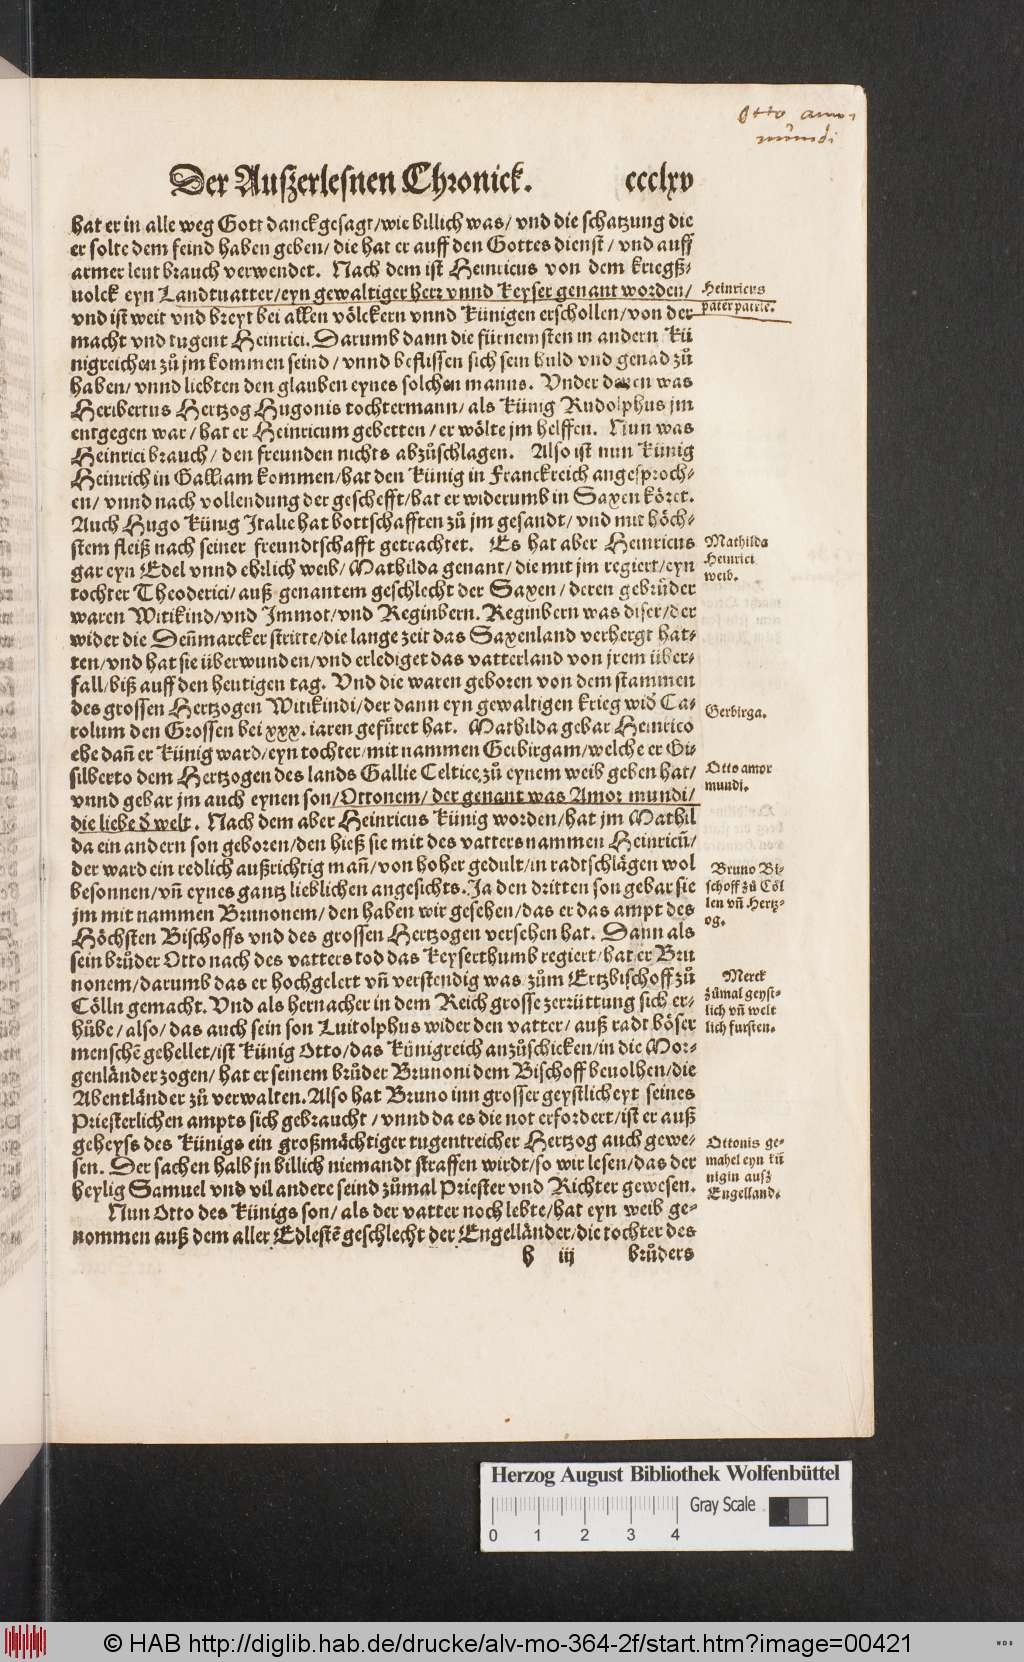 Otto amor
mundi
Der Auszerlesnen Chronick. ccclxv
hat er in alle weg Gott danckgesagt/wie billich was/ vnd die schatzung die
er solte dem feind haben geben/ die hat er auff den Gottes dienst/ vnd auff
armer leut brauch verwendet. Nach dem ist Heinricus von dem kriegß⸗
uolck eyn Landtuatter/eyn gewaltiger herr vnnd Keyser genant worden/
Heinricus
pater patrie.
vnd ist weit vnd breyt bei allen völckern vnnd Künigen erschollen/von der
macht vnd tugent Heinrici. Darumb dann die fürnemsten in andern Kü
nigreichen zů jm kommen seind/ vnnd beflissen sich sein huld vnd genad zů
haben/ vnnd liebten den glauben eynes solchen manns. Vnder denen was
Heribertus Hertzog Hugonis tochtermann/ als Künig Rudolphus jm
entgegen war/ hat er Heinricum gebetten/ er wölte jm helffen. Nun was
Heinrici brauch/ den freunden nichts abzůschlagen. Also ist nun Künig
Heinrich in Galliam kommen/hat den Künig in Franckreich angesproch⸗
en/ vnnd nach vollendung der geschefft/hat er widerumb in Saxen köret.
Auch Hugo Künig Italie hat bottschafften zů jm gesandt/ vnd mit höch⸗
stem fleiß nach seiner freundtschafft getrachtet. Es hat aber Heinricus
Mathilda
Heinrici
weib.
gar eyn Edel vnnd ehrlich weib/ Mathilda genant/ die mit jm regiert/eyn
tochter Theoderici/ auß genantem geschlecht der Saxen/ deren gebrüder
waren Witikind/vnd Immot/vnd Reginbern. Reginbern was diser/der
wider die Deñmarcker stritte/die lange zeit das Saxenland verhergt hat⸗
ten/vnd hat sie überwunden/vnd erlediget das vatterland von jrem über⸗
fall/biß auff den heutigen tag. Vnd die waren geboren von dem stammen
des grossen Hertzogen Witikindi/der dann eyn gewaltigen krieg wid̄ Ca⸗
Gerbirga.
rolum den Grossen bei xxx. iaren gefüret hat. Mathilda gebar Heinrico
ehe dañ er Künig ward/eyn tochter/mit nammen Gerbirgam/welche er Gi⸗
silberto dem Hertzogen des lands Gallie Celtice zů eynem weib geben hat/
Otto amor
mundi.
vnnd gebar jm auch eynen son/Ottonem/ der genant was Amor mundi/
die liebe d̄ welt. Nach dem aber Heinricus Künig worden/hat jm Mathil
da ein andern son geboren/den hieß sie mit des vatters nammen Heinricū/
der ward ein redlich außrichtig mañ/von hoher gedult/in radtschlägen wol
besonnen/vñ eynes gantz lieblichen angesichts. Ja den dritten son gebar sie
Bruno Bi⸗
schoff zů Cöl
len vñ Hertz⸗
og.
jm mit nammen Brunonem/den haben wir gesehen/das er das ampt des
Höchsten Bischoffs vnd des grossen Hertzogen versehen hat. Dann als
sein brůder Otto nach des vatters tod das Keyserthumb regiert/hat er Bru
nonem/darumb das er hochgelert vñ verstendig was zům Ertzbischoff zů
Merck
zůmal geyst⸗
lich vñ welt
lich fursten.
Cölln gemacht. Vnd als hernacher in dem Reich grosse zerrüttung sich er⸗
hůbe/also/das auch sein son Luitolphus wider den vatter/ auß radt böser
menschē gehellet/ist Künig Otto/das Künigreich anzůschicken/in die Mor⸗
genländer zogen/ hat er seinem brůder Brunoni dem Bischoff beuolhen/die
Abentländer zů verwalten. Also hat Bruno inn grosser geystlicheyt seines
Priesterlichen ampts sich gebraucht/ vnnd da es die not erfordert/ist er auß
geheyss des Künigs ein großmächtiger tugentreicher Hertzog auch gewe⸗
sen. Der sachen halb jn billich niemandt straffen wirdt/so wir lesen/das der
heylig Samuel vnd vil andere seind zůmal Priester vnd Richter gewesen.
Ottonis ge⸗
mahel eyn kü
nigin ausz
Engelland.
Nun Otto des Künigs son/ als der vatter noch lebte/hat eyn weib ge⸗
nommen auß dem aller Edlestē geschlecht der Engelländer/die tochter des
h iij brůders
Herzog August Bibliothek Wolfenbüttel
0 1 2 3 4 Gray Scale
© HAB http://diglib.hab.de/drucke/alv-mo-364-2f/start.htm?image=00421
WDB